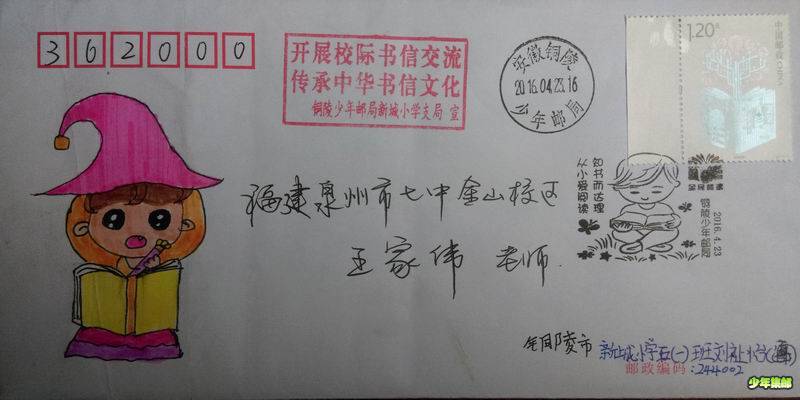 362000
开展校际书信交流
传承中华书信文化
铜陵少年邮局新城小学支局 宣
安徽铜陵
2016.04.23.16
少年邮局
1.20元
中国邮政
CHINA
福建泉州市七中金山校区
王家伟 老师
知书而达理
从小爱阅读
全民阅读
2016.4.23
铜陵少年邮局
铜陵市 新城小学五(一)班
邮政编码:244002
少年集邮